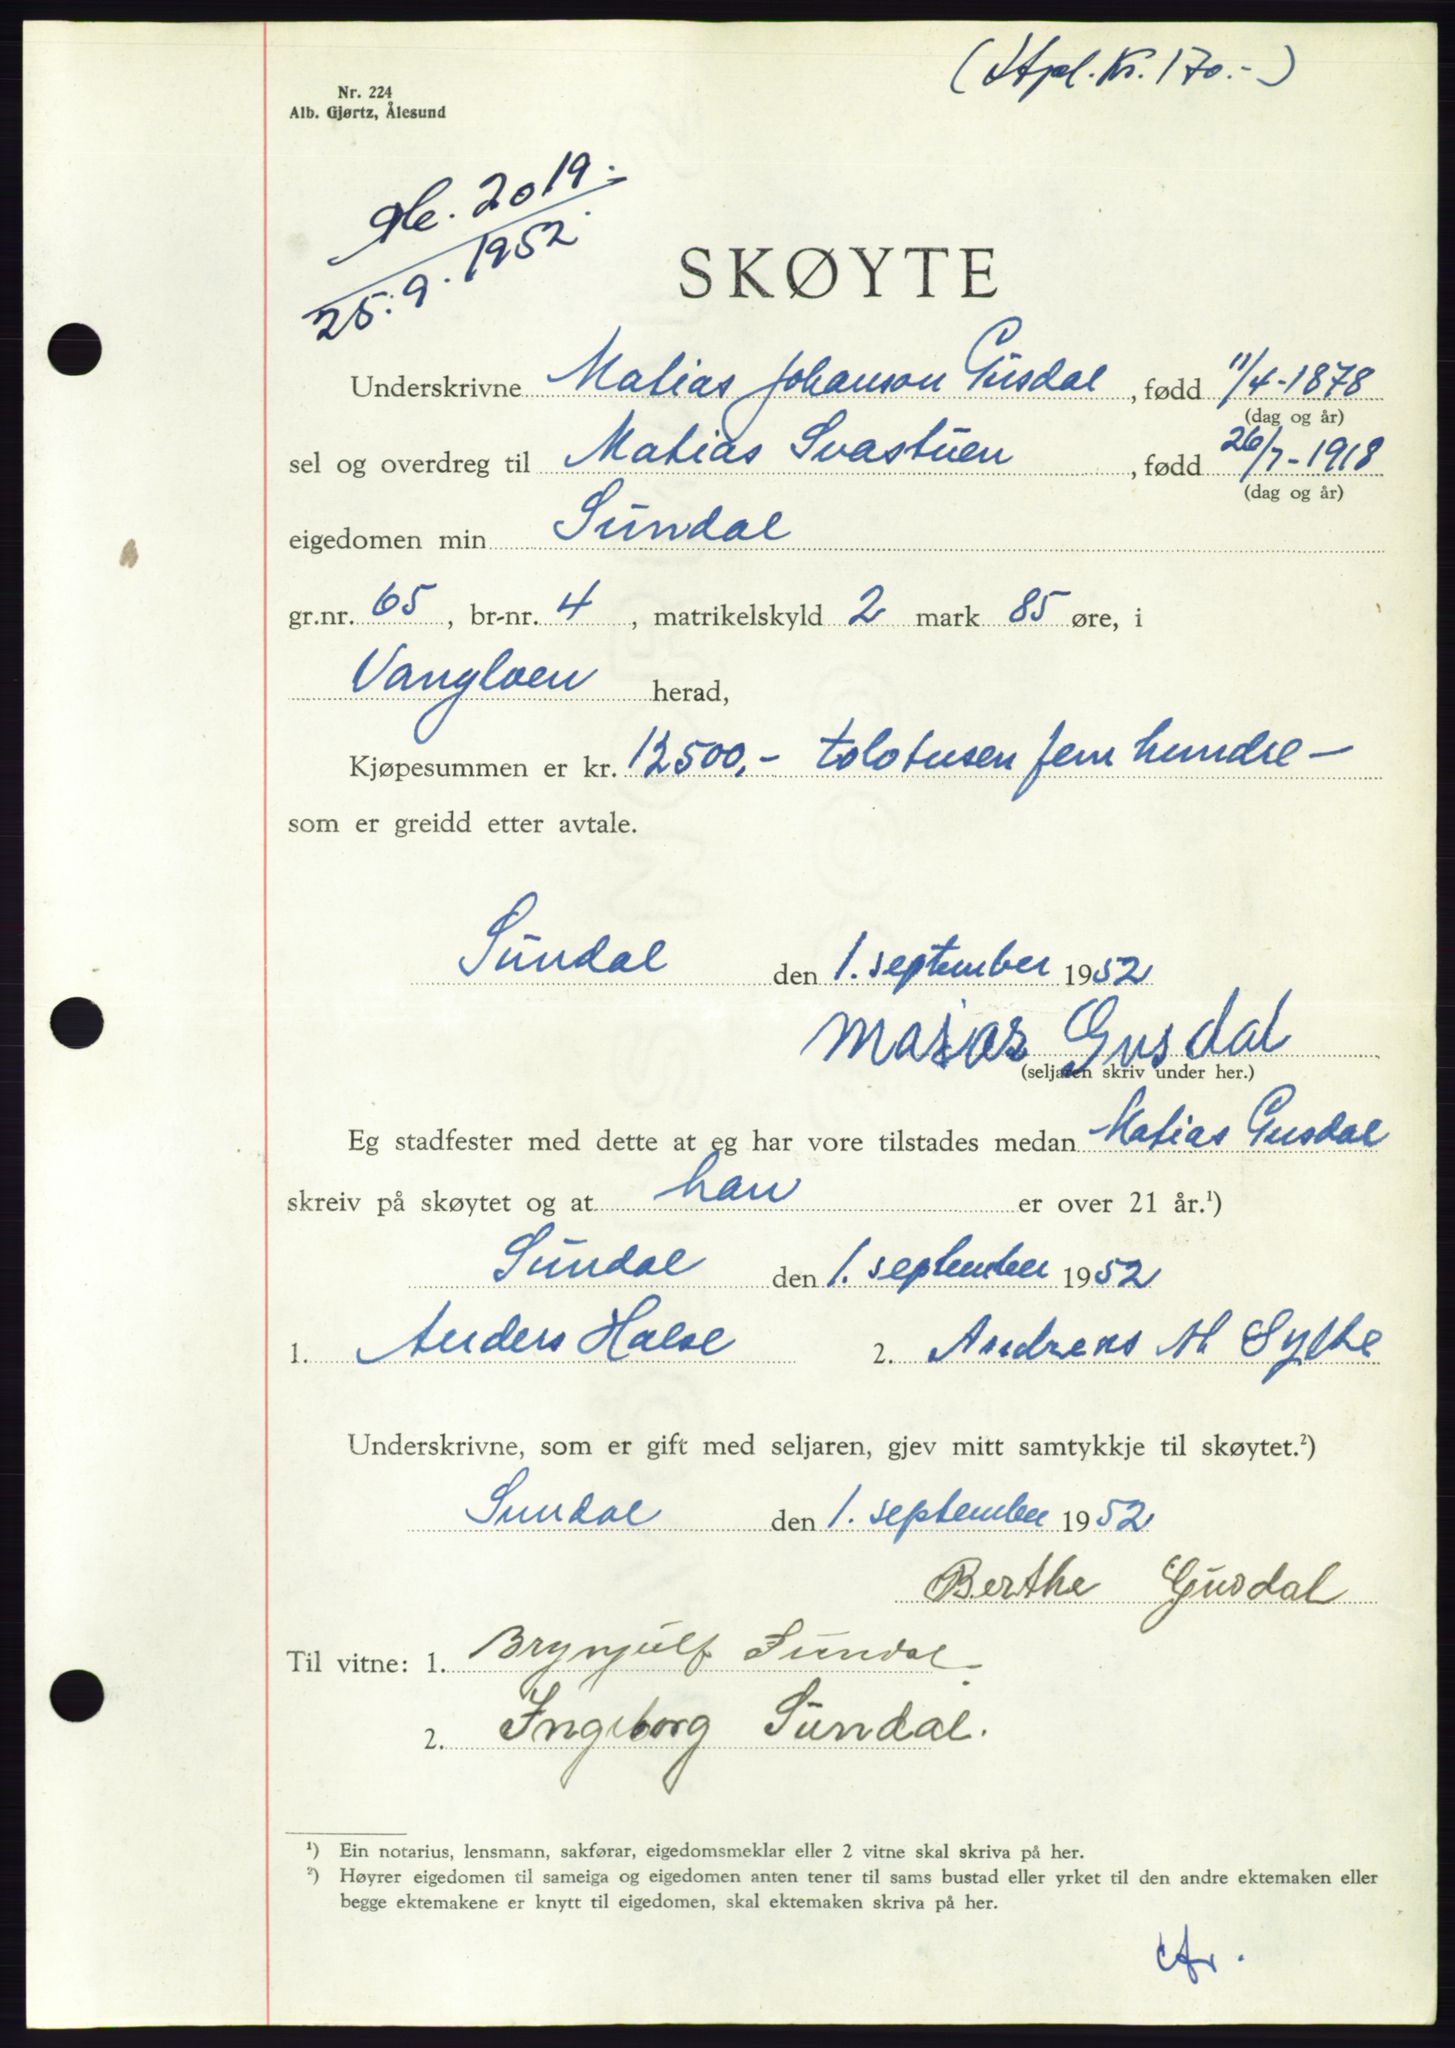 (Stpl. Kr. 170.-)
Nr. 224
Alb. Gjørtz, Ålesund
2019.
25.9.1952.
SKØYTE
Underskrivne Matias Johanson Gusdal, fødd 11/4-1878
(dag og år)
sel og overdreg til Matias Svastuen, fødd 26/7-1918
(dag og år)
eigedomen min Sundal
gr.nr. 65, br-nr. 4, matrikelskyld 2 mark 85 øre, i
Vanylven herad,
Kjøpesummen er kr. 12500,- tolvtusen fem hundre -
som er greidd etter avtale.
Sundal den 1. september 1952
Matias Gusdal
(seljaren skriv under her.)
Eg stadfester med dette at eg har vore tilstades medan Matias Gusdal
skreiv på skøytet og at han er over 21 år.¹)
Sundal den 1. september 1952
1. Anders Halse 2. Andreas M Sylte
Underskrivne, som er gift med seljaren, gjev mitt samtykkje til skøytet.²)
Sundal den 1. september 1952
Berthe Gusdal
Til vitne: 1. Brynjulf Sundal
2. Ingeborg Sundal.
¹) Ein notarius, lensmann, sakførar, eigedomsmeklar eller 2 vitne skal skriva på her.
²) Høyrer eigedomen til sameiga og eigedomen anten tener til sams bustad eller yrket til den andre ektemaken eller
begge ektemakene er knytt til eigedomen, skal ektemaken skriva på her.